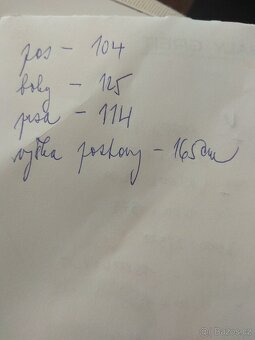 pas - 104
boky - 125
prsa - 114
výška postavy - 165cm